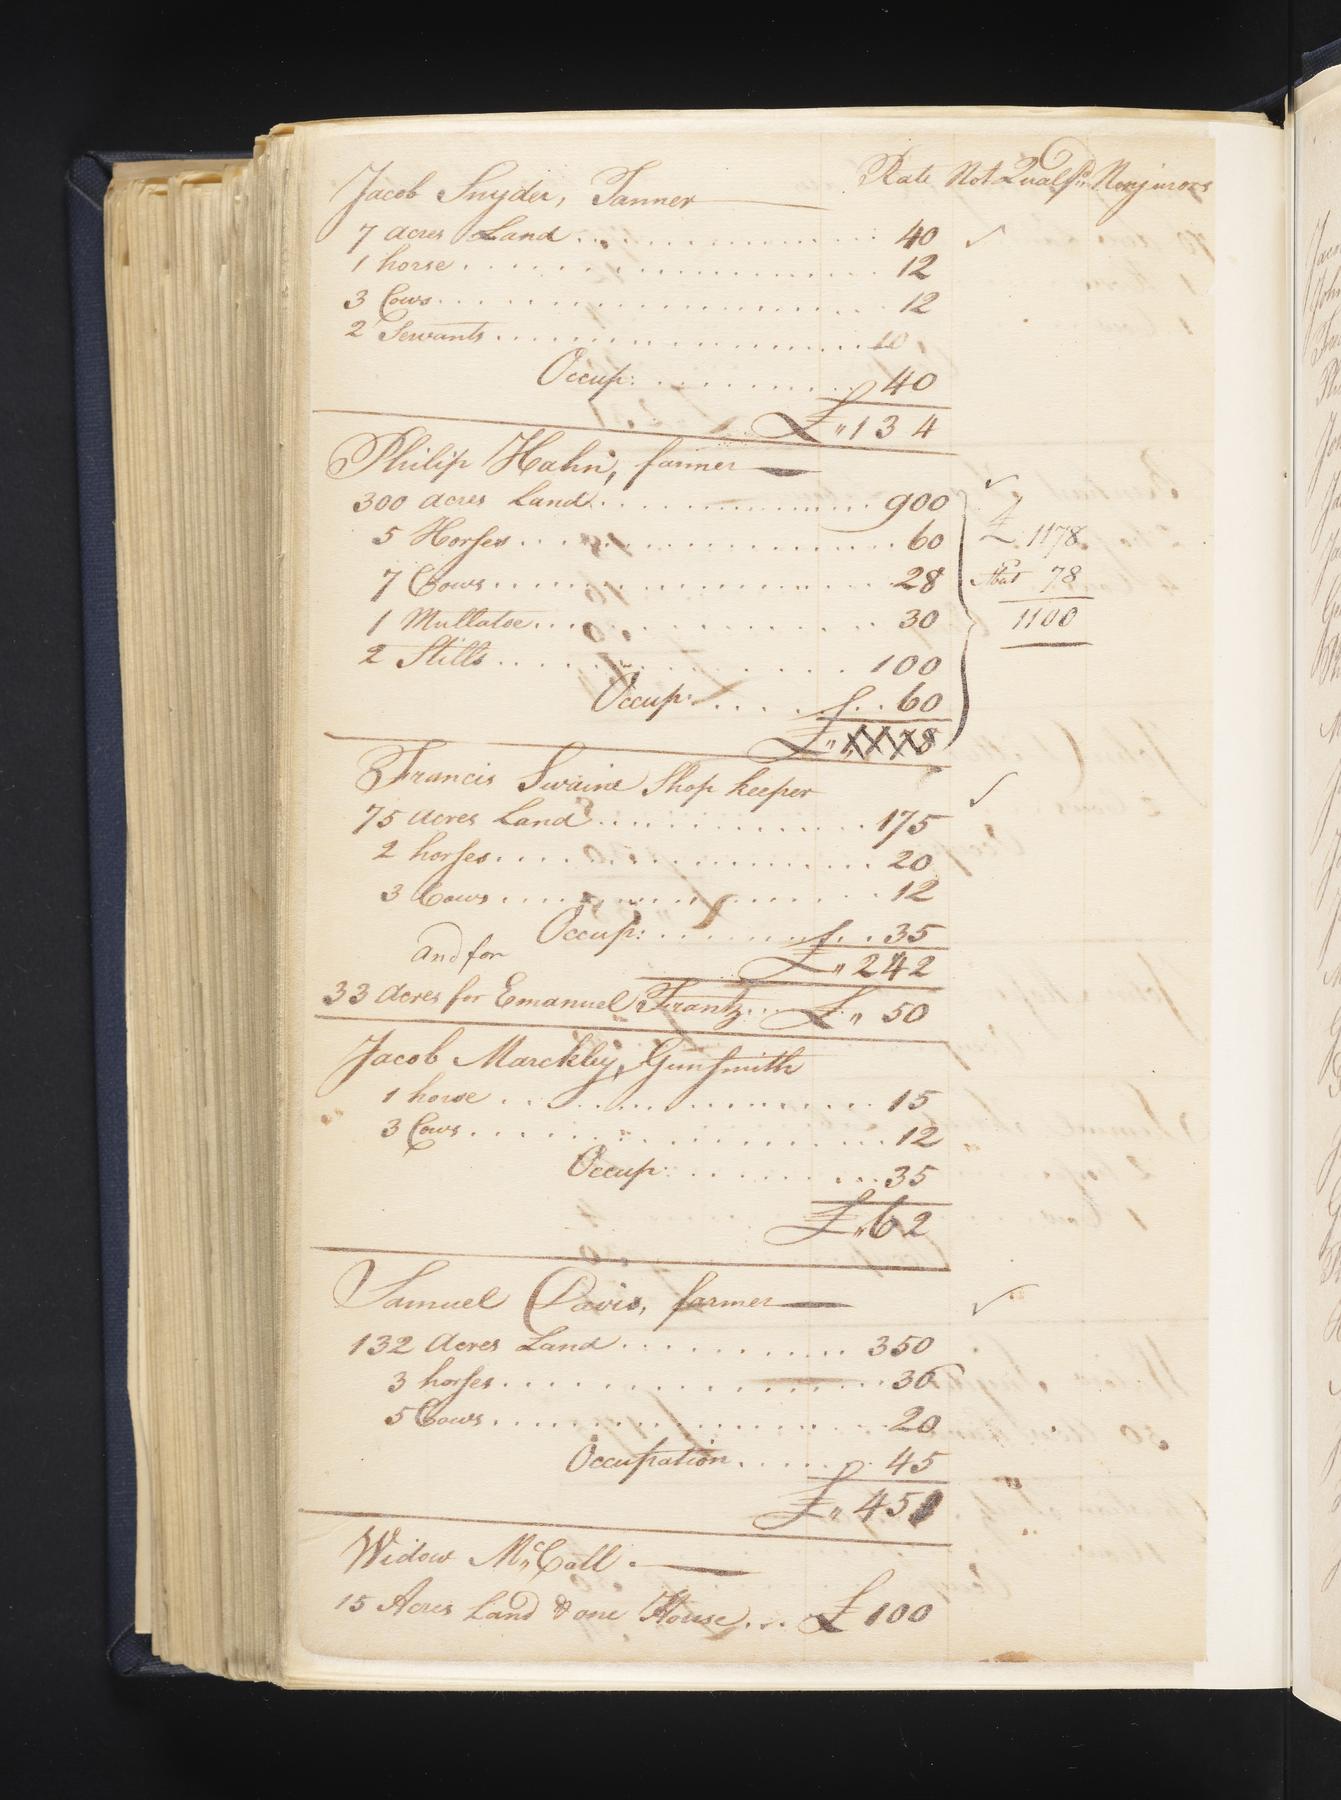 Rate Not Qualfd. Nonjurors
Jacob Snyder, Tanner
7 acres Land ........ 40
1 horse ........ 12
3 Cows ........ 12
2 Servants ........ 10
Occup: ........ 40
£ „ 134
Philip Hahn, farmer
300 acres Land ........ 900
5 Horses ........ 60 £ 1178
7 Cows ........ 28 Abat 78
1 Mullatoe ........ 30 1100
2 Stills ........ 100
Occup: ........ 60
£ „ 1178
Francis Swaine Shop keeper
75 acres Land ........ 175
2 horses ........ 20
3 Cows ........ 12
Occup: ........ 35
and for £ „ 242
33 acres for Emanuel Frantz ... £ „ 50
Jacob Marckley, Gunsmith
1 horse ........ 15
3 Cows ........ 12
Occup: ........ 35
£ „ 62
Samuel Davis, farmer
132 Acres Land ........ 350
3 horses ........ 36
5 Cows ........ 20
Occupation ........ 45
£ „ 451
Widow McCall
15 Acres Land & one House ... £ 100